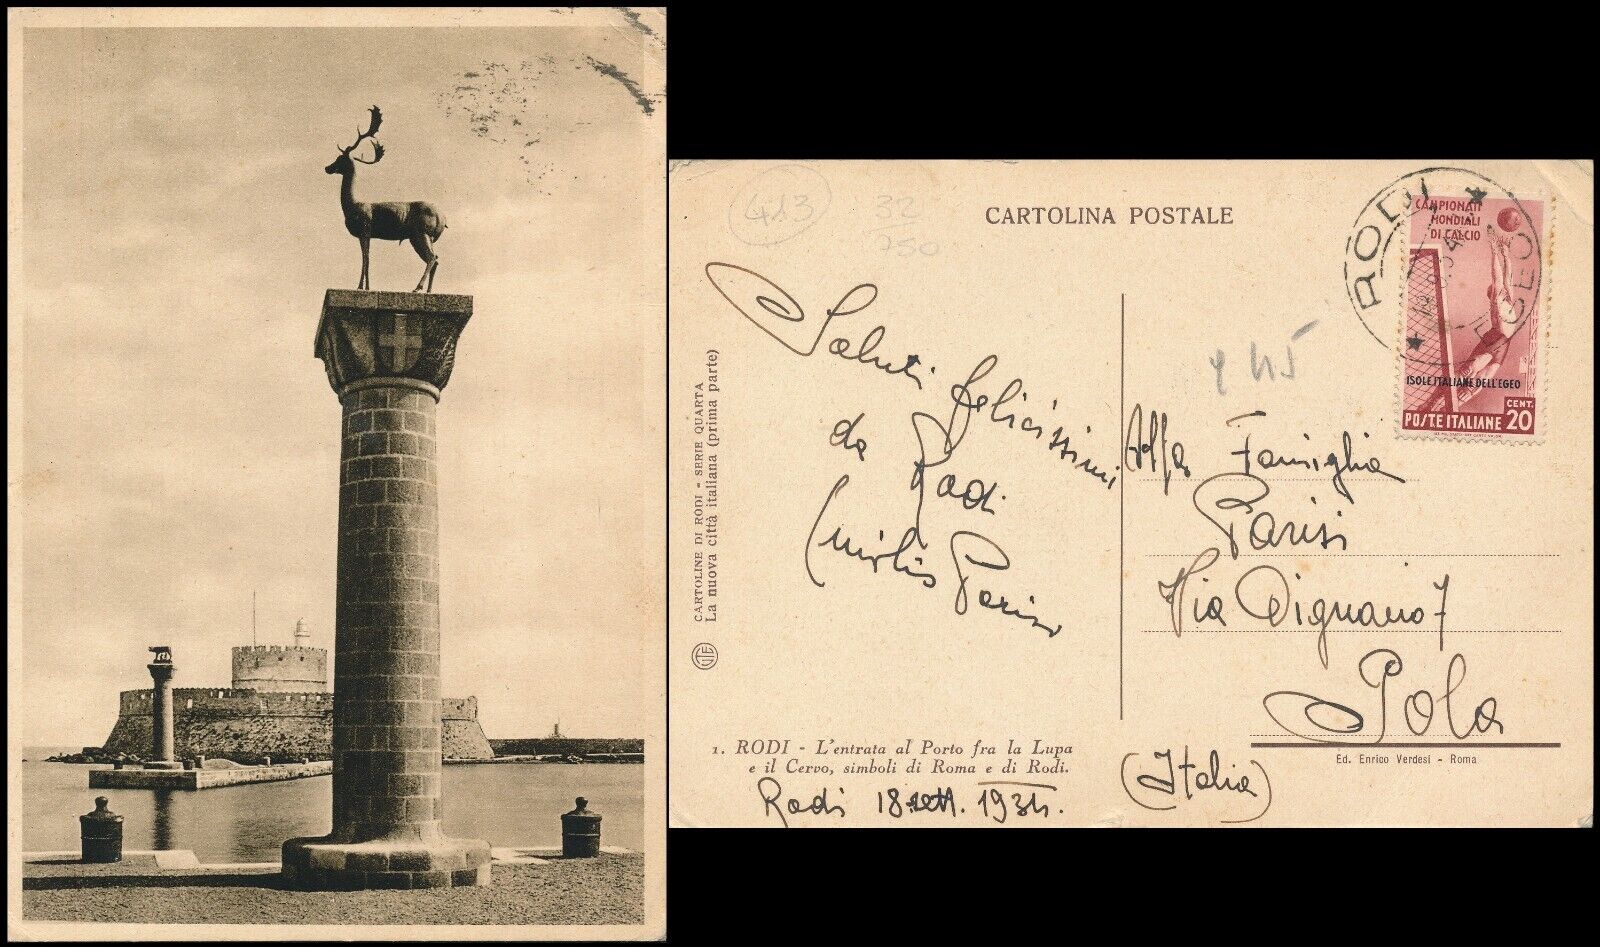 413
32
750
CARTOLINA POSTALE
RODI
EGEO
CAMPIONATI
MONDIALI
DI CALCIO
ISOLE ITALIANE DELL'EGEO
POSTE ITALIANE
CENT.
20
Saluti felicissimi
da Rodi
Parisi
Alla Famiglia
Parisi
Via Dignano 7
Pola
(Italia)
CARTOLINE DI RODI - SERIE QUARTA
La nuova città italiana (prima parte)
1. RODI - L'entrata al Porto fra la Lupa
e il Cervo, simboli di Roma e di Rodi.
Rodi 18 sett. 1934.
Ed. Enrico Verdesi - Roma